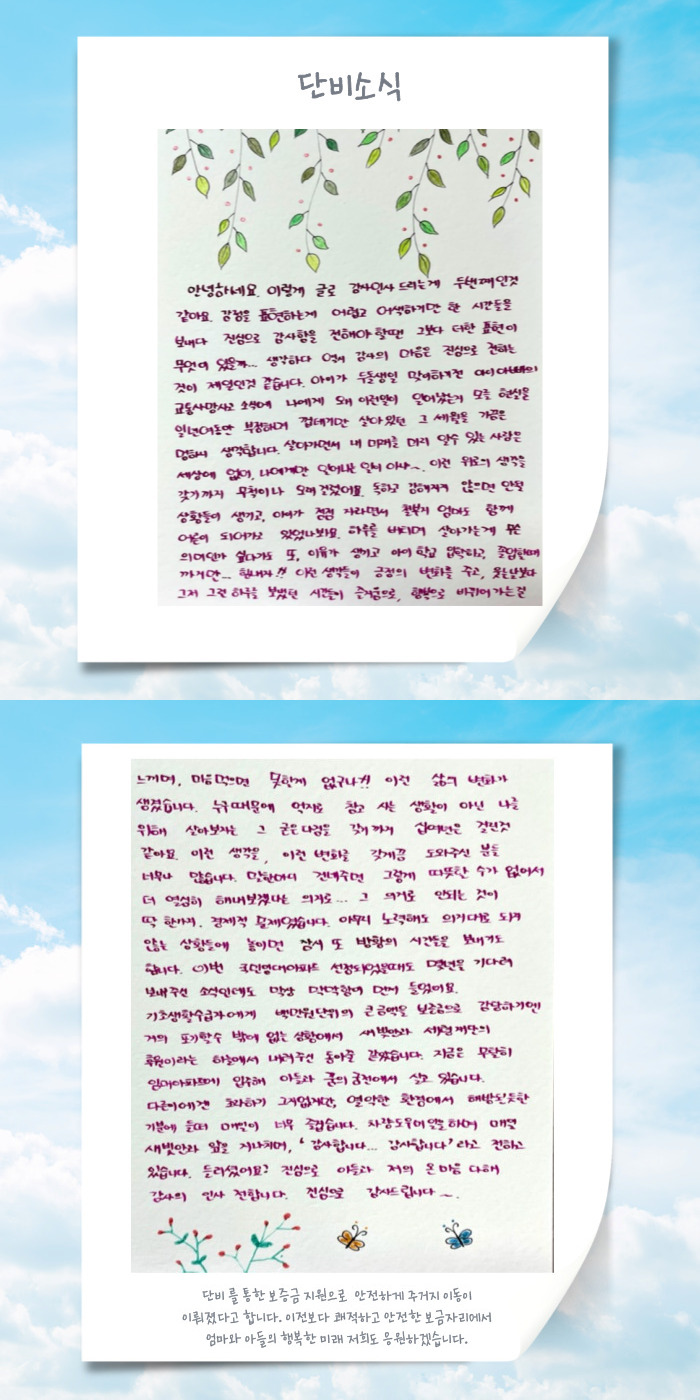 단비소식
안녕하세요. 이렇게 글로 감사인사 드리는게 두번째인것
같아요. 감정을 표현하는게 어렵고 어색하기만 한 시간들을
보내다 진심으로 감사함을 전해야 할땐 그보다 더한 표현이
무엇이 있을까... 생각하다 역시 감사의 마음은 진심으로 전하는
것이 제일인것 같습니다. 아이가 두돌생일 맞이하기전 아이아빠의
교통사망사고 소식에 나에게 왜 이런일이 일어났는지 모를 현실을
일년여동안 부정하며 껍데기만 살아왔던 그 세월을 가끔은
멍하니 생각합니다. 살아가면서 내 미래를 미리 알수 있는 사람은
세상에 없어, 나에게만 일어나는 일이 아냐~. 이런 위로의 생각을
갖기까지 무척이나 오래 걸렸어요. 독하고 강해지지 않으면 안될
상황들이 생기고, 아이가 점점 자라면서 철부지 엄마도 함께
어른이 되어가고 있었나봐요. 하루를 버티며 살아가는게 무슨
의미인가 싶다가도 또, 이유가 생기고 아이 학교 입학하고, 졸업할때
까지만... 힘내자!! 이런 생각들이 긍정의 변화를 주고, 웃는날보다
그저 그런 하루를 보냈던 시간들이 즐거움으로, 행복으로 바뀌어 가는걸
느끼며, 마음먹으면 못할게 없구나!! 이런 삶의 변화가
생겼습니다. 누구때문에 억지로 참고 사는 생활이 아닌 나를
위해 살아보자는 그 굳은다짐을 갖기까지 십여년은 걸린것
같아요. 이런 생각을, 이런 변화를 갖게끔 도와주신 분들
너무나 많습니다. 말한마디 건네주면 그렇게 따뜻할 수가 없어서
더 열심히 해내보겠다는 의지로... 그 의지로 안되는 것이
딱 한가지. 경제적 문제였습니다. 아무리 노력해도 의지대로 되지
않는 상황들에 놓이면 잠시 또 방황의 시간들을 보내기도
합니다. 이번 국민임대아파트 선정되었을때도 몇년을 기다려
보내주신 소식인데도 막상 막막함이 먼저 들었어요.
기초생활수급자에게 백만원단위의 큰금액을 보증금으로 감당하기엔
거의 포기할수 밖에 없는 상황에서 새빛안과 세월재단의
후원이라는 하늘에서 내려주신 동아줄 같았습니다. 지금은 무탈히
임대아파트에 입주해 아들과 꿈의 궁전에서 살고 있습니다.
다른이에겐 초라하기 그지없겠지만, 열악한 환경에서 해방된듯한
기분에 들떠 매일이 너무 즐겁습니다. 차량도우미일을하며 매일
새빛안과 앞을 지나치며, ' 감사합니다... 감사합니다' 라고 전하고
있습니다. 들리셨어요? 진심으로 아들과 저의 온마음 다해
감사의 인사 전합니다. 진심으로 감사드립니다~.
단비를 통한 보증금 지원으로 안전하게 주거지 이동이
이뤄졌다고 합니다. 이전보다 쾌적하고 안전한 보금자리에서
엄마와 아들의 행복한 미래 저희도 응원하겠습니다.